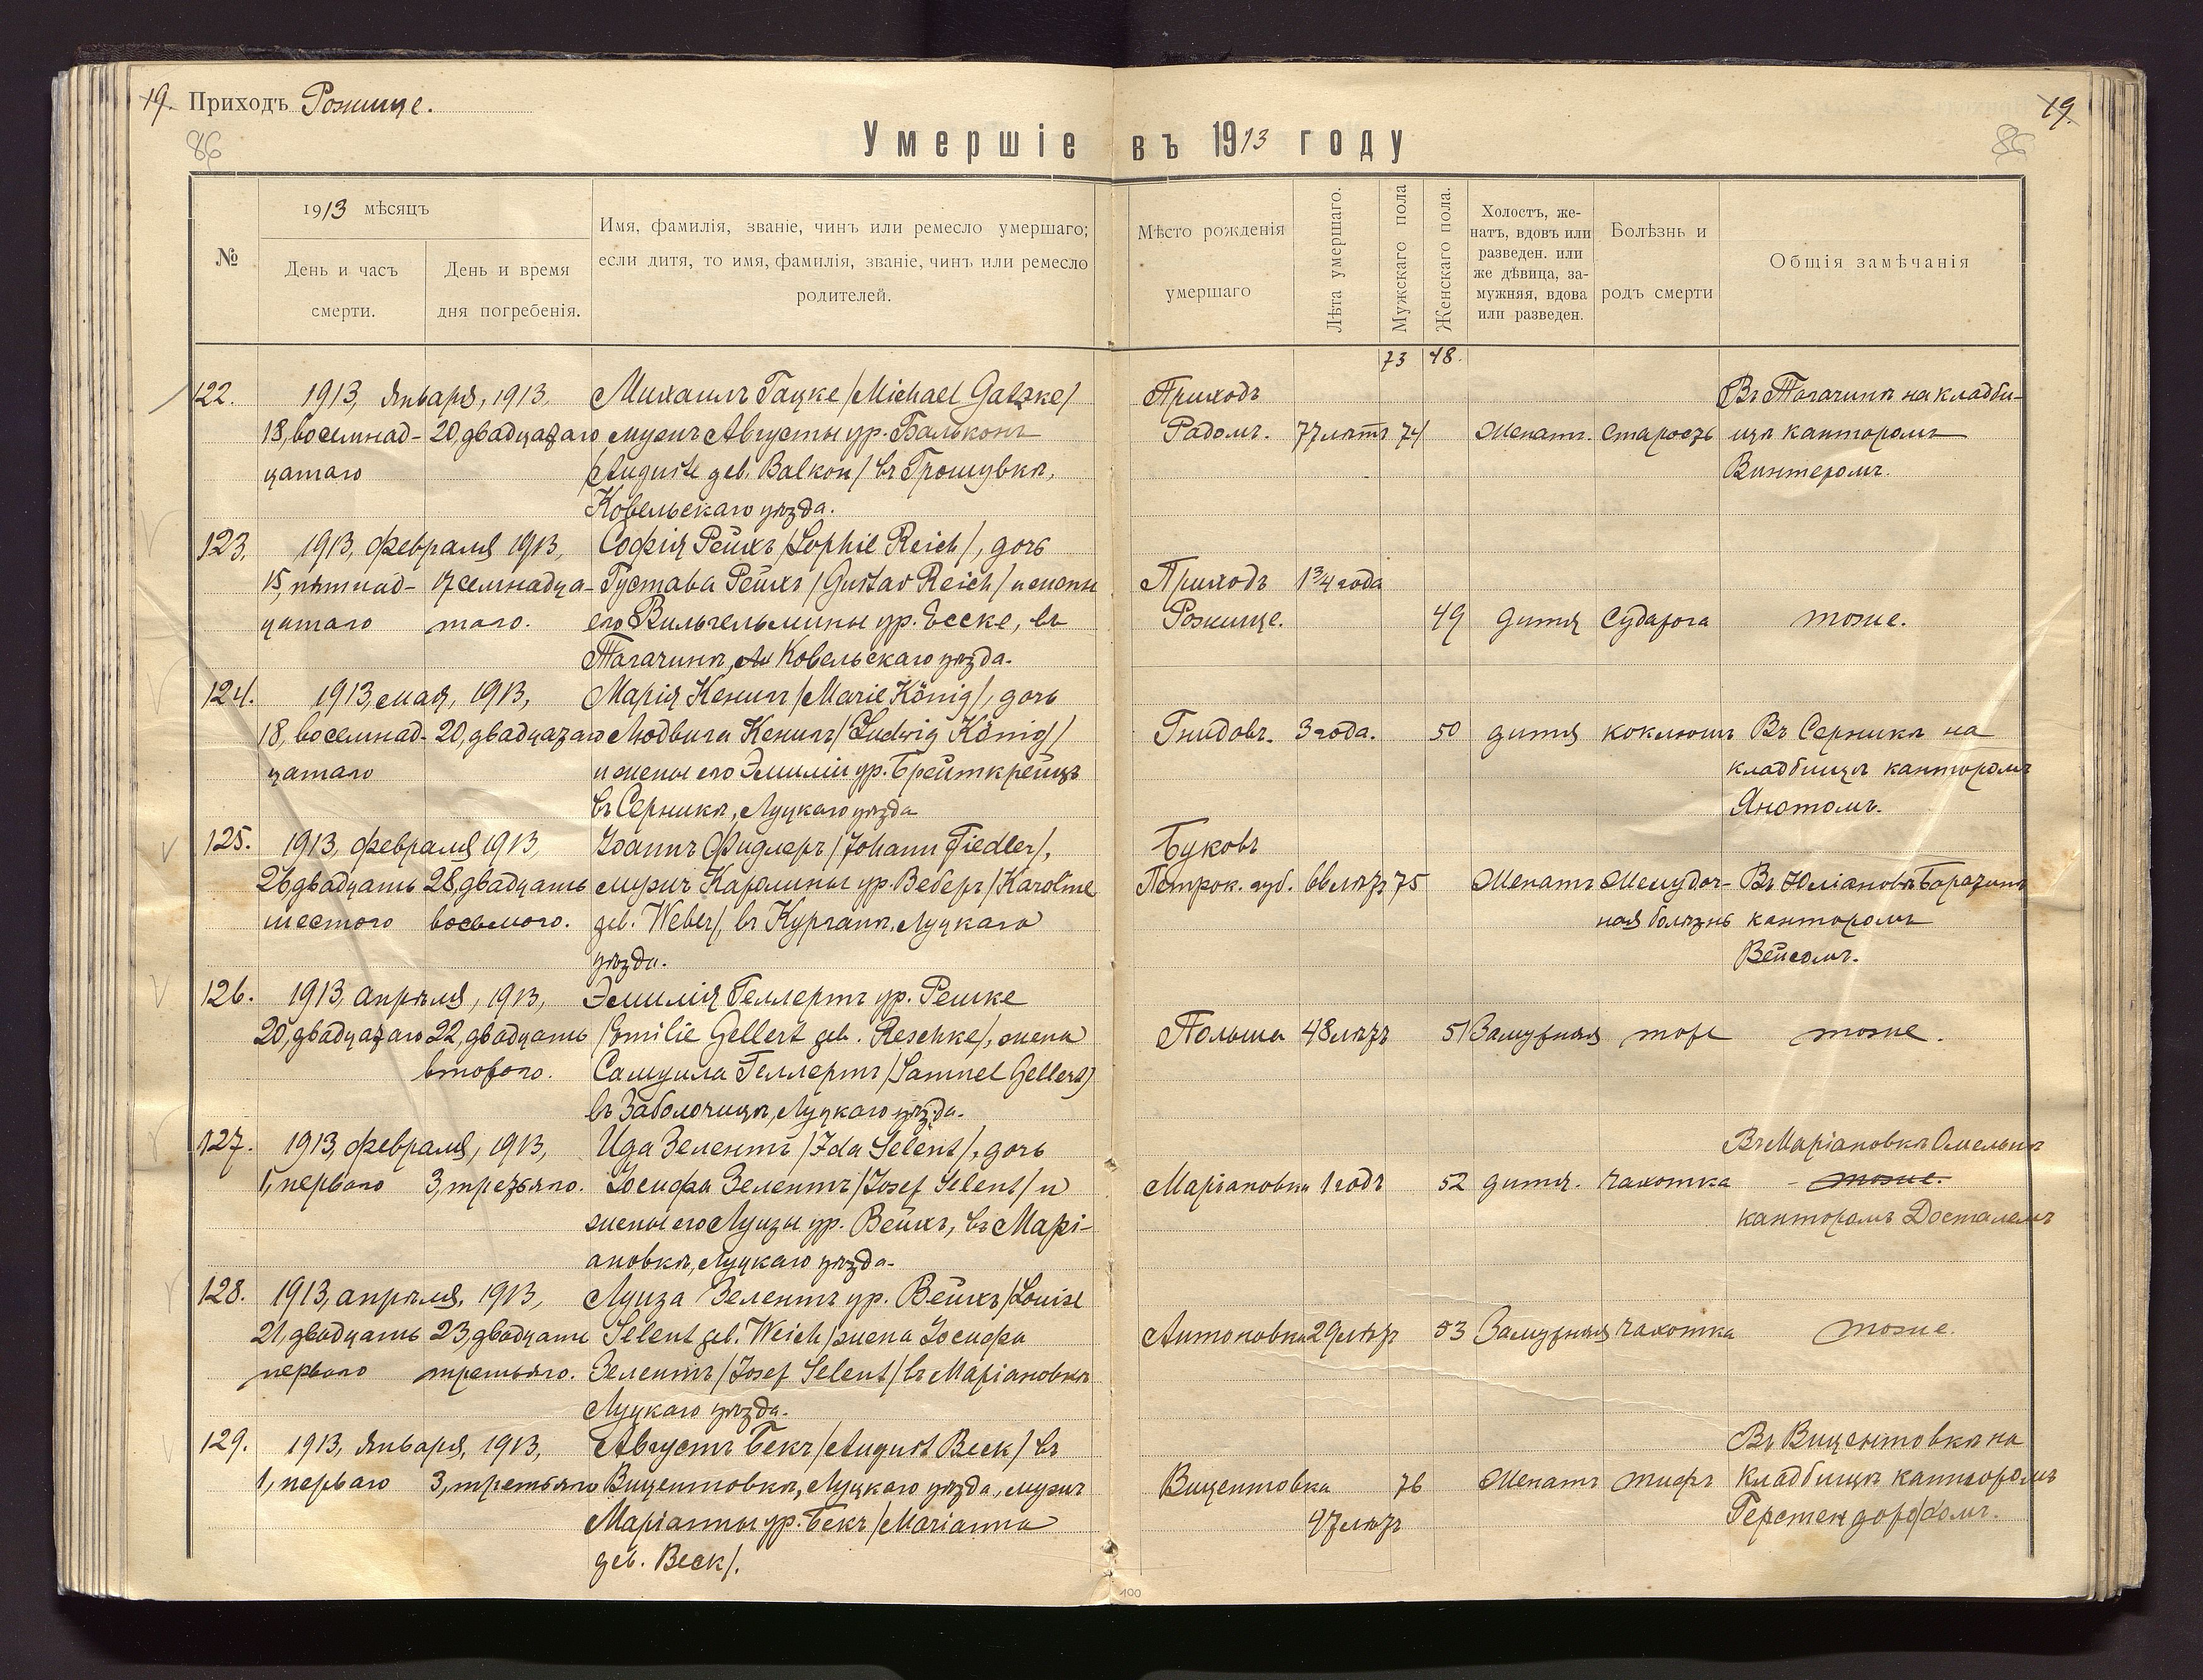 19. Приходъ Рожище.
19.
86
86
Умершіе въ 1913 году
№
1913 мѣсяцъ
День и часъ смерти.
День и время дня погребенія.
Имя, фамилія, званіе, чинъ или ремесло умершаго;
если дитя, то имя, фамилія, званіе, чинъ или ремесло
родителей.
Мѣсто рожденія
умершаго
Лѣта умершаго.
Мужскаго пола
Женскаго пола.
Холостъ, же-
натъ, вдовъ или
разведен. или
же дѣвица, за-
мужняя, вдова
или разведен.
Болѣзнь и
родъ смерти
Общія замѣчанія
73 48.
122. 1913, Января, 1913, Михаилъ Гацке /Michael Gatzke/ Приходъ Въ Тагачинѣ на кладби-
18, восемнад- 20, двадцатаго мужъ Августы ур. Бальконъ Радомъ. 77 лѣтъ 74 Женатъ. старость щѣ канторомъ
цатаго /Auguste geb. Balkon/ въ Грошувкѣ, Винтеромъ.
Ковельскаго уѣзда.
123. 1913, февраля 1913, Софія Рейхъ /Sophie Reich/, дочь
15, пятнад- 17 семнадца- Густава Рейхъ /Gustav Reich/ и жены Приходъ 1¾ года
цатаго таго. его Вильгельмины ур. Ѣеске, въ Рожище. 49 дитя судорога тоже.
Тагачинѣ, Ковельскаго уѣзда.
124. 1913, мая, 1913, Марія Кенигъ /Marie König/, дочь
18, восемнад- 20, двадцатаго Людвига Кенигъ /Ludwig König/ Гнидовъ. 3 года. 50 дитя коклюшъ Въ Серникѣ на
цатаго и жены его Эмиліи ур. Брейткрейцъ кладбищѣ канторомъ
въ Серникѣ, Луцкаго уѣзда Янотомъ.
125. 1913, февраля 1913, Іоаннъ Фидлеръ /Johann Fiedler/, Буковъ
26, двадцать 28, двадцать мужъ Каролины ур. Веберъ /Karoline Петрок. губ. 66 лѣтъ 75 Женатъ Желудоч- Въ Юліановкѣ Баратинѣ
шестого восьмого. geb. Weber/, въ Курганѣ, Луцкаго ная болѣзнь канторомъ
уѣзда. Вейсомъ.
126. 1913, апрѣля, 1913, Эмилія Геллертъ ур. Решке
20, двадцатаго 22, двадцать /Emilie Gellert geb. Reschke/, жена Польша 48 лѣтъ 51 Замужняя тоже тоже.
второго. Самуила Геллертъ /Samuel Gellert/
въ Заболочицѣ, Луцкаго уѣзда.
127. 1913, февраля, 1913, Ида Зелентъ /Ida Selent/, дочь Въ Маріановкѣ Омельнѣ
1, перваго 3, третьяго. Іосифа Зелентъ /Josef Selent/ и Маріановка 1 годъ 52 дитя. чахотка - тоже.
жены его Луизы ур. Вейхъ, въ Марі- канторомъ Досталемъ
ановкѣ, Луцкаго уѣзда.
128. 1913, апрѣля, 1913, Луиза Зелентъ ур. Вейхъ /Louise
21, двадцать 23, двадцать Selent geb. Weich/ жена Іосифа Антоновка 29 лѣтъ 53 Замужняя чахотка тоже.
перваго третьяго. Зелентъ /Josef Selent/ въ Маріановкѣ
Луцкаго уѣзда.
129. 1913, Января, 1913, Августъ Бекъ /August Beck/ въ Въ Вицентовкѣ на
1, перваго 3, третьяго Вицентовкѣ, Луцкаго уѣзда, мужъ Вицентовка 76 Женатъ тифъ кладбищѣ канторомъ
Маріанны ур. Бекъ /Marianna 47 лѣтъ Герстендорфомъ.
geb. Beck/.
100